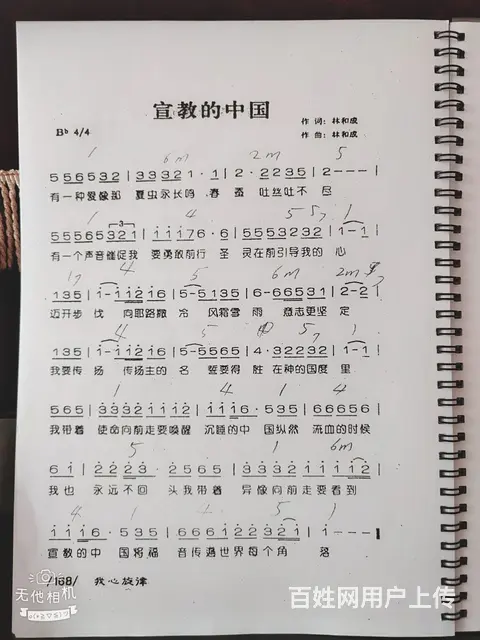 宣教的中国
作词:林和成
B♭ 4/4
作曲:林和成
1 6m 2m 5
556532 | 33321·1 | 2·2235 | 2--- |
有一种爱像那 夏虫永长鸣 春蚕 吐丝吐不 尽
1 4 5 5₇ 1
55565321 | 1 1 1 76·6 | 5·532231 | 1-1 |
有一个声音催促我 要勇敢前行 圣 灵在前引导我的 心
1₇ 4 5 6m 2m
135 | 1-1126 | 5-535 | 6-66531 | 2-2 |
迈开步 伐 向耶路撒 冷 风霜雪 雨 意志更坚 定
4 5 5₇ 1
135 | 1-1126 | 5-5565 | 4·32232 | 1-1 |
我要传 扬 传扬主的 名 誓要得 胜 在神的国度 里
1 4 1 4
565 | 3333212 | 1116·535 | 666656 |
我带着 使命向前走要唤醒 沉睡的中 国纵然 流血的时候
5 1 6m
6 1 | 2223·2565 | 3333211112 |
我也 永远不回 头我带着 异像向前走要看到
4 1 4 5 1
1116·535 | 666622321 | 1--- ‖
宣教的中 国将福 音传遍世界每个角 落
/168/ 我心旋津
无他相机
百姓网用户上传